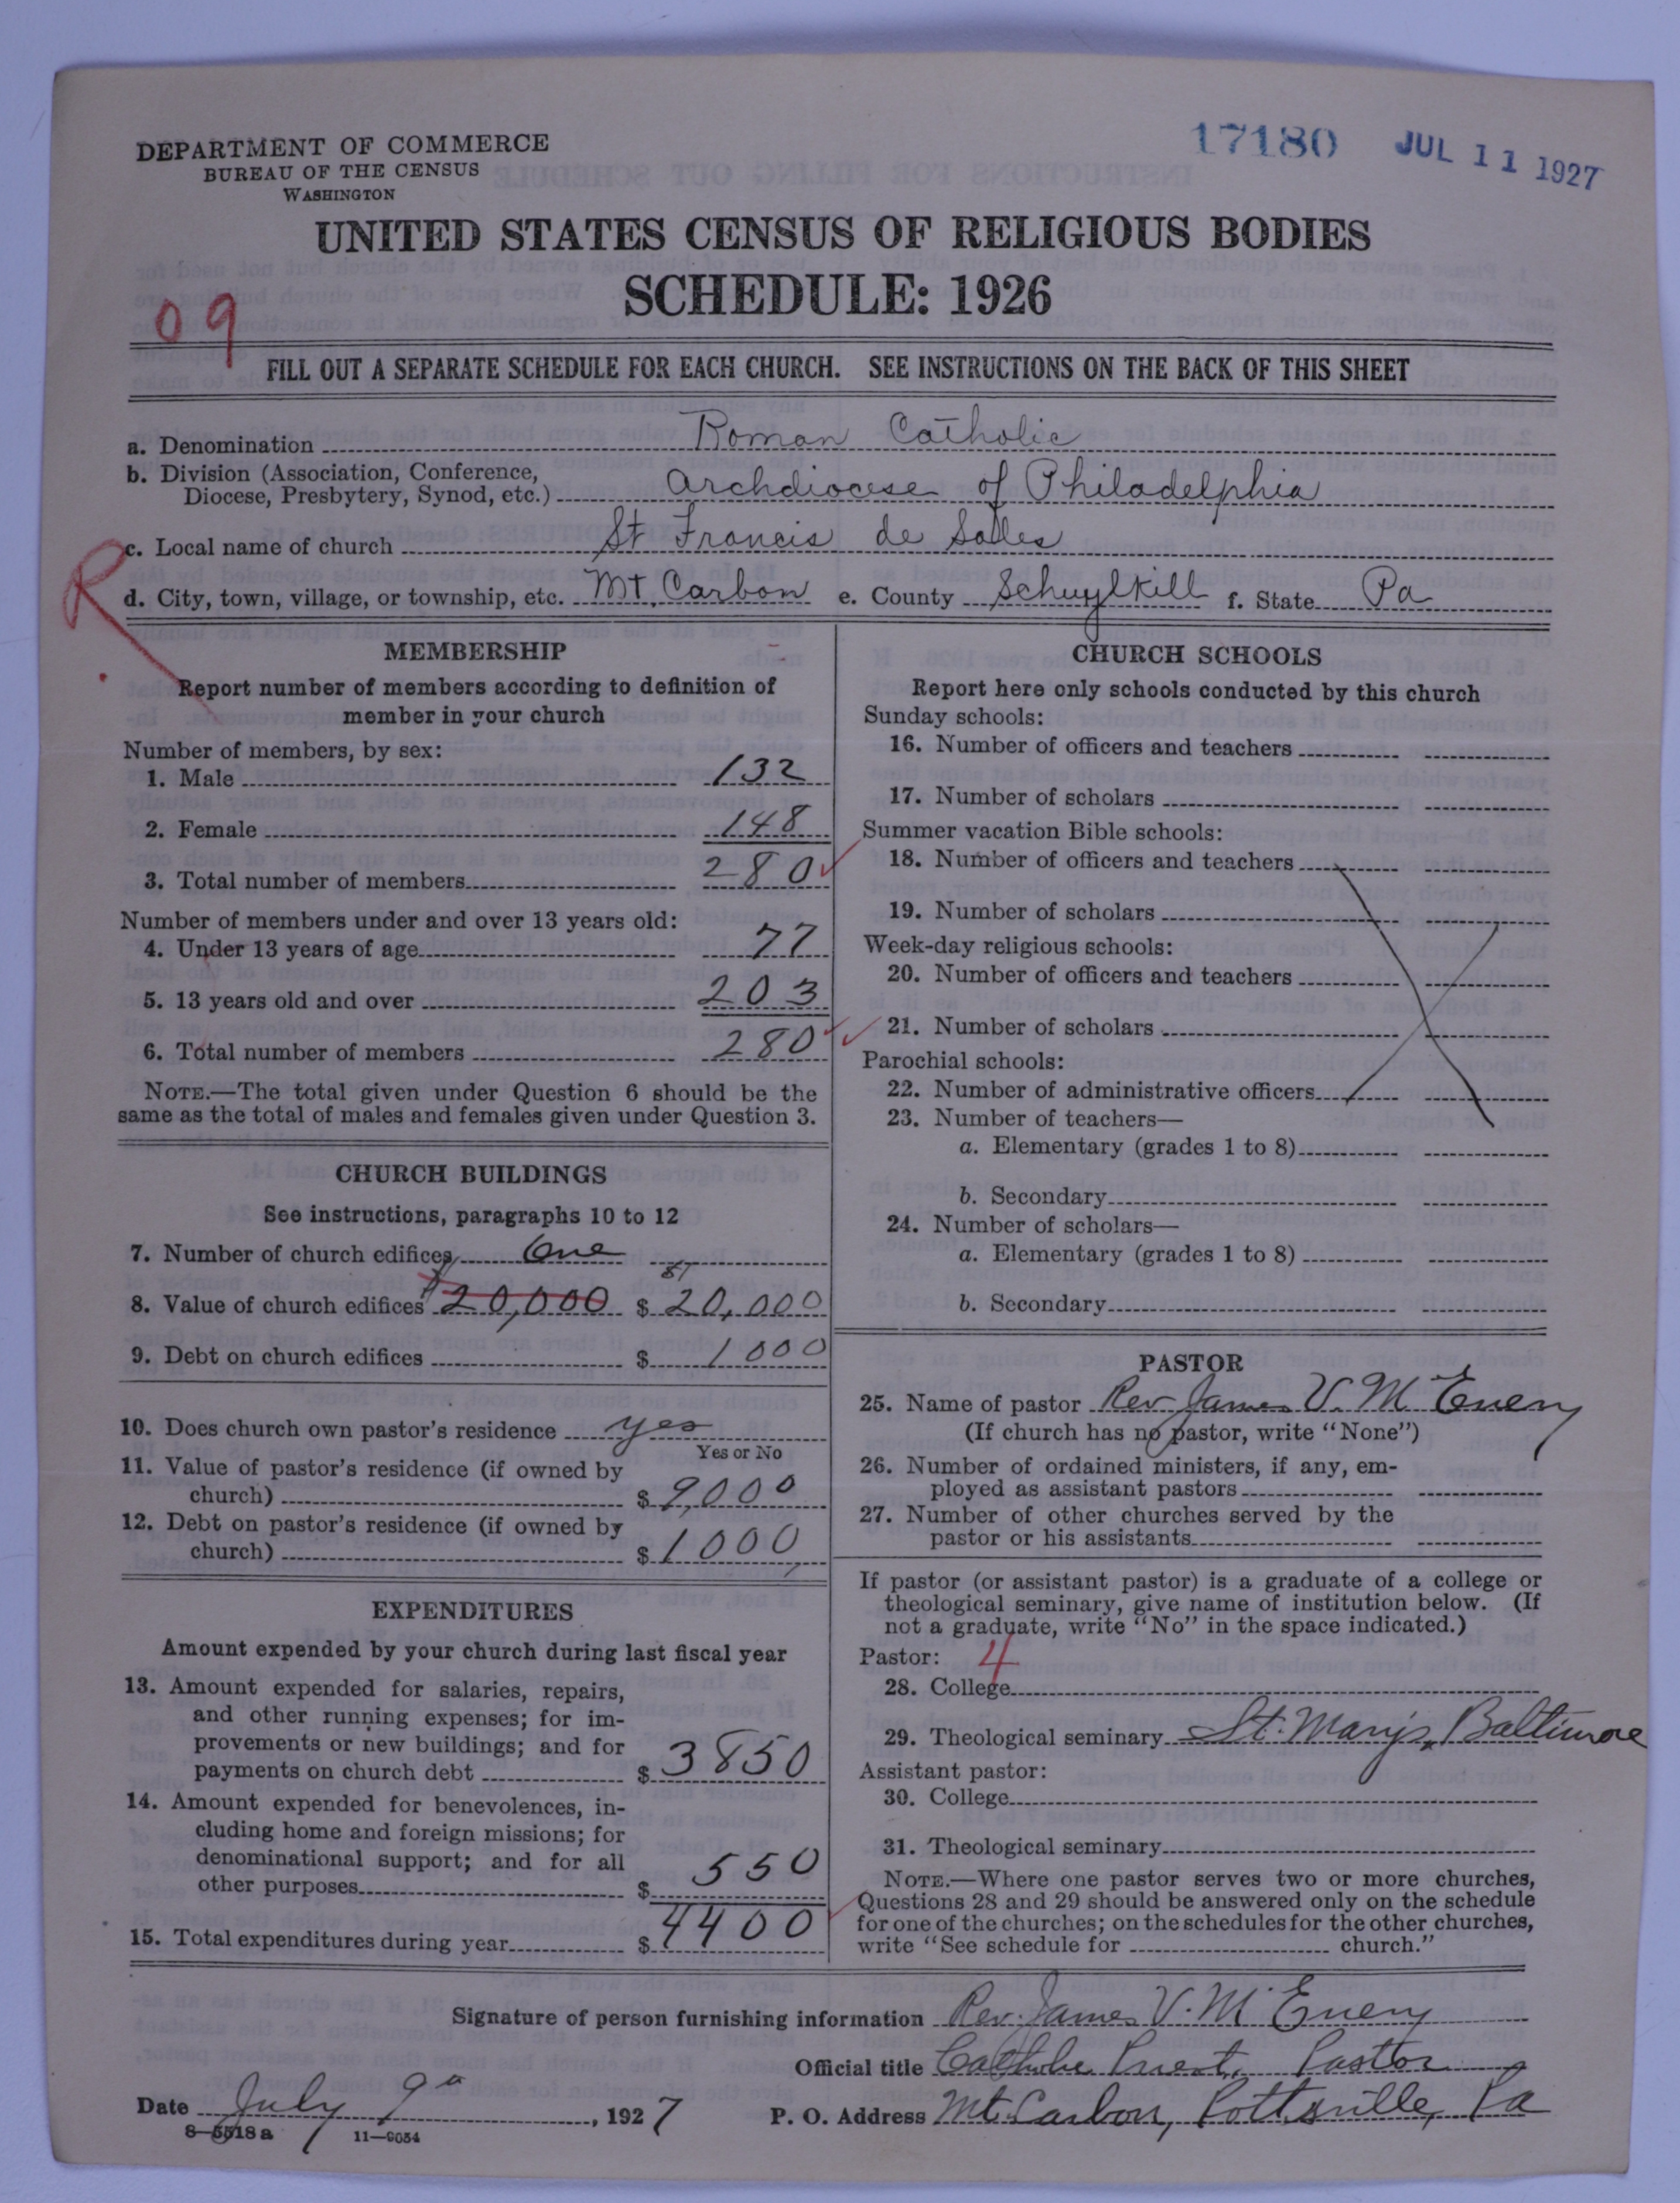 17180 JUL 11 1927
DEPARTMENT OF COMMERCE
BUREAU OF THE CENSUS
WASHINGTON
UNITED STATES CENSUS OF RELIGIOUS BODIES
SCHEDULE: 1926
09
FILL OUT A SEPARATE SCHEDULE FOR EACH CHURCH. SEE INSTRUCTIONS ON THE BACK OF THIS SHEET
a. Denomination Roman Catholic
b. Division (Association, Conference,
Diocese, Presbytery, Synod, etc.) Archdiocese of Philadelphia
c. Local name of church St Francis de Salles
R
d. City, town, village, or township, etc. Mt. Carbon e. County Schuylkill f. State Pa
MEMBERSHIP
Report number of members according to definition of
member in your church
Number of members, by sex:
1. Male 132
2. Female 148
3. Total number of members 280
Number of members under and over 13 years old:
4. Under 13 years of age 77
5. 13 years old and over 203
6. Total number of members 280
NOTE.—The total given under Question 6 should be the
same as the total of males and females given under Question 3.
CHURCH BUILDINGS
See instructions, paragraphs 10 to 12
7. Number of church edifices One
8. Value of church edifices 20,000 $ 20,000
9. Debt on church edifices $ 1000
10. Does church own pastor's residence yes
Yes or No
11. Value of pastor's residence (if owned by
church) $ 9,000
12. Debt on pastor's residence (if owned by
church) $ 1000
EXPENDITURES
Amount expended by your church during last fiscal year
13. Amount expended for salaries, repairs,
and other running expenses; for im-
provements or new buildings; and for
payments on church debt $ 3850
14. Amount expended for benevolences, in-
cluding home and foreign missions; for
denominational support; and for all
other purposes $ 550
15. Total expenditures during year $ 4400
CHURCH SCHOOLS
Report here only schools conducted by this church
Sunday schools:
16. Number of officers and teachers
17. Number of scholars
Summer vacation Bible schools:
18. Number of officers and teachers
19. Number of scholars
Week-day religious schools:
20. Number of officers and teachers
21. Number of scholars
Parochial schools:
22. Number of administrative officers
23. Number of teachers—
a. Elementary (grades 1 to 8)
b. Secondary
24. Number of scholars—
a. Elementary (grades 1 to 8)
b. Secondary
PASTOR
25. Name of pastor Rev. James V. McEnery
(If church has no pastor, write "None")
26. Number of ordained ministers, if any, em-
ployed as assistant pastors
27. Number of other churches served by the
pastor or his assistants
If pastor (or assistant pastor) is a graduate of a college or
theological seminary, give name of institution below. (If
not a graduate, write "No" in the space indicated.)
Pastor: 4
28. College
29. Theological seminary St. Mary's, Baltimore
Assistant pastor:
30. College
31. Theological seminary
NOTE.—Where one pastor serves two or more churches,
Questions 28 and 29 should be answered only on the schedule
for one of the churches; on the schedules for the other churches,
write "See schedule for church."
Signature of person furnishing information Rev. James V. McEnery
Official title Catholic Priest, Pastor
Date July 9, 1927 P. O. Address Mt. Carbon, Pottsville, Pa
8—5518a 11—9054